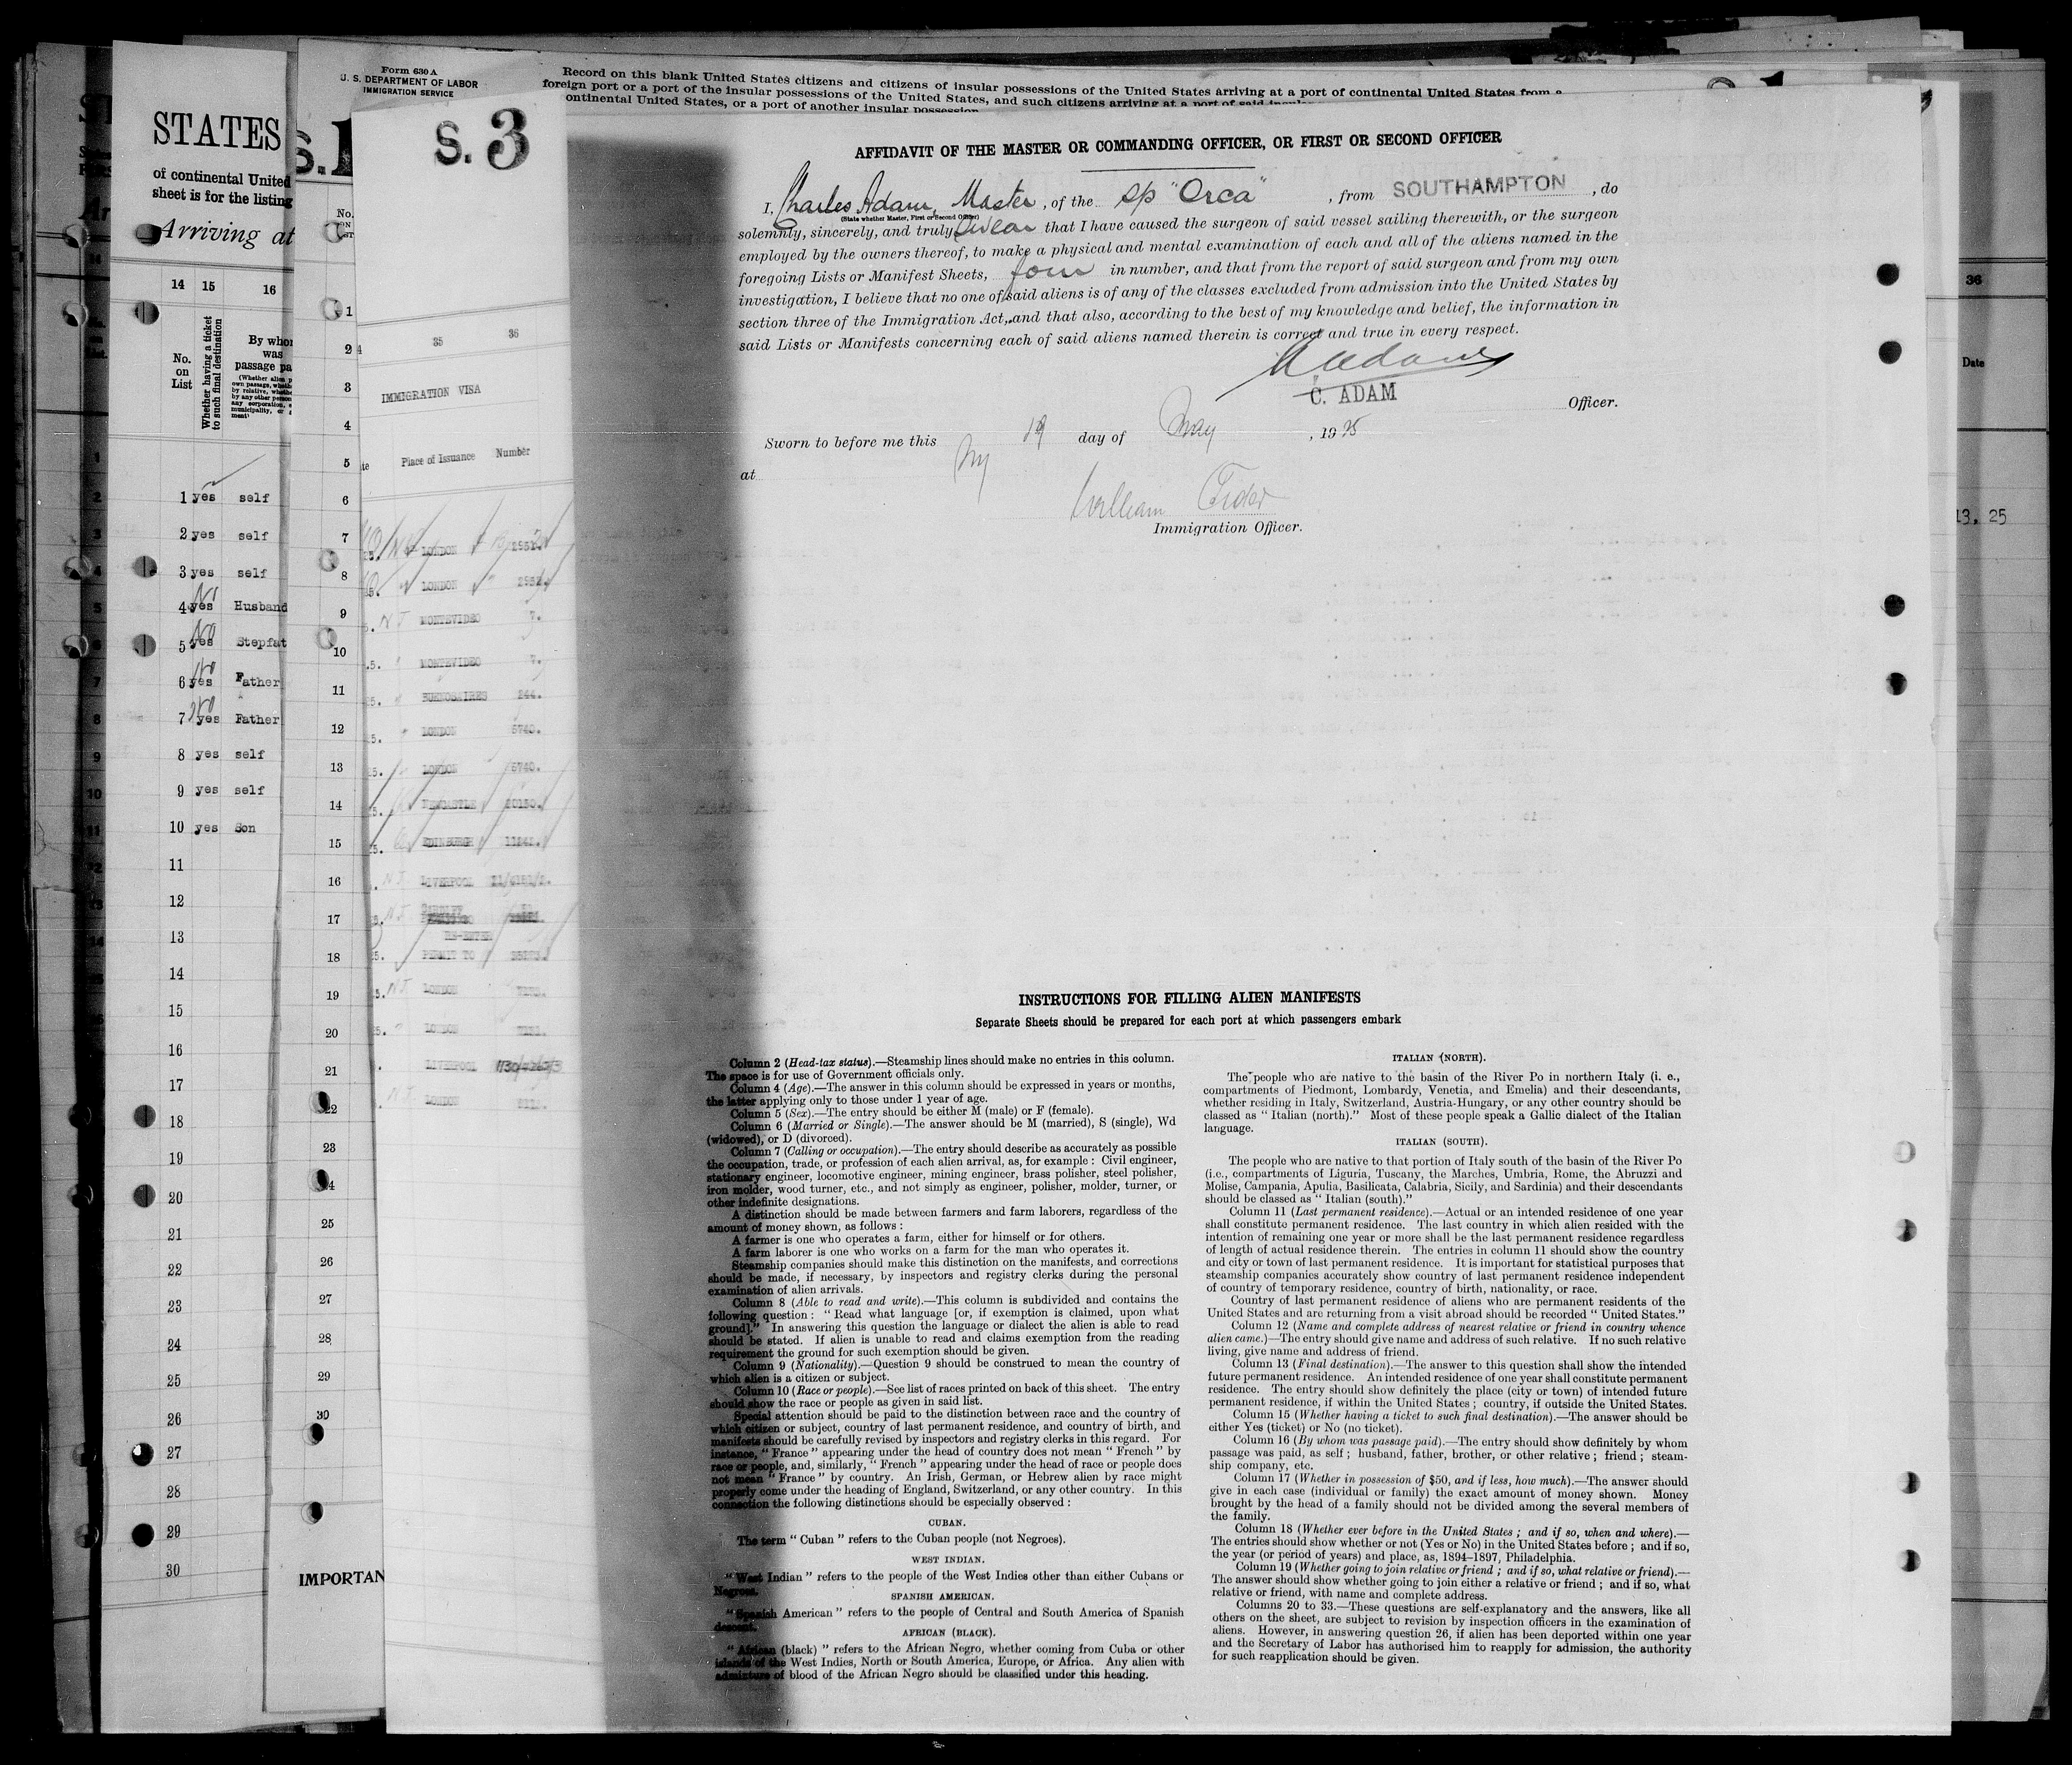 STATES
of continental United
sheet is for the listing
Arriving at
14 15 16
No. on List
Whether having a ticket to such final destination
By whom
was
passage pa
1 yes self
2 yes self
3 yes self
4 yes No Husband
5 yes No Stepfat
6 yes No Father
7 yes No Father
8 yes self
9 yes self
10 yes Son
11
12
13
14
15
16
17
18
19
20
21
22
23
24
25
26
27
28
29
30
Form 630 A
U. S. DEPARTMENT OF LABOR
IMMIGRATION SERVICE
Record on this blank United States citizens and citizens of insular possessions of the United States arriving at a port of continental United States from a
foreign port or a port of the insular possessions of the United States, and such citizens arriving at a port of said insular
ontinental United States, or a port of another insular possession
S.1
No.
1
2
3
4
5
6
7
8
9
10
11
12
13
14
15
16
17
18
19
20
21
22
23
24
25
26
27
28
29
30
IMPORTAN
S. 3
35 36
IMMIGRATION VISA
Place of Issuance Number
LONDON
LONDON
MONTEVIDEO 7.
MONTEVIDEO 7.
BUENOSAIRES 244.
LONDON 5740.
LONDON 5740.
NEWCASTLE
EDINBURGH
LIVERPOOL
RE-ENTER
PERMIT TO
LONDON
LONDON
LIVERPOOL
LONDON
36
Date
13, 25
AFFIDAVIT OF THE MASTER OR COMMANDING OFFICER, OR FIRST OR SECOND OFFICER
I, Charles Adam, Master, of the sp "Orca", from SOUTHAMPTON, do
(State whether Master, First or Second Officer)
solemnly, sincerely, and truly swear that I have caused the surgeon of said vessel sailing therewith, or the surgeon
employed by the owners thereof, to make a physical and mental examination of each and all of the aliens named in the
foregoing Lists or Manifest Sheets, four in number, and that from the report of said surgeon and from my own
investigation, I believe that no one of said aliens is of any of the classes excluded from admission into the United States by
section three of the Immigration Act, and that also, according to the best of my knowledge and belief, the information in
said Lists or Manifests concerning each of said aliens named therein is correct and true in every respect.
C Adam
C. ADAM
Officer.
Sworn to before me this 19 day of May, 1925
at NY
William
Immigration Officer.
INSTRUCTIONS FOR FILLING ALIEN MANIFESTS
Separate Sheets should be prepared for each port at which passengers embark
Column 2 (Head-tax status).—Steamship lines should make no entries in this column.
The space is for use of Government officials only.
Column 4 (Age).—The answer in this column should be expressed in years or months,
the latter applying only to those under 1 year of age.
Column 5 (Sex).—The entry should be either M (male) or F (female).
Column 6 (Married or Single).—The answer should be M (married), S (single), Wd
(widowed), or D (divorced).
Column 7 (Calling or occupation).—The entry should describe as accurately as possible
the occupation, trade, or profession of each alien arrival, as, for example : Civil engineer,
stationary engineer, locomotive engineer, mining engineer, brass polisher, steel polisher,
iron molder, wood turner, etc., and not simply as engineer, polisher, molder, turner, or
other indefinite designations.
A distinction should be made between farmers and farm laborers, regardless of the
amount of money shown, as follows :
A farmer is one who operates a farm, either for himself or for others.
A farm laborer is one who works on a farm for the man who operates it.
Steamship companies should make this distinction on the manifests, and corrections
should be made, if necessary, by inspectors and registry clerks during the personal
examination of alien arrivals.
Column 8 (Able to read and write).—This column is subdivided and contains the
following question : " Read what language [or, if exemption is claimed, upon what
ground]." In answering this question the language or dialect the alien is able to read
should be stated. If alien is unable to read and claims exemption from the reading
requirement the ground for such exemption should be given.
Column 9 (Nationality).—Question 9 should be construed to mean the country of
which alien is a citizen or subject.
Column 10 (Race or people).—See list of races printed on back of this sheet. The entry
should show the race or people as given in said list.
Special attention should be paid to the distinction between race and the country of
which citizen or subject, country of last permanent residence, and country of birth, and
manifests should be carefully revised by inspectors and registry clerks in this regard. For
instance, " France " appearing under the head of country does not mean " French " by
race or people, and, similarly, " French " appearing under the head of race or people does
not mean " France " by country. An Irish, German, or Hebrew alien by race might
properly come under the heading of England, Switzerland, or any other country. In this
connection the following distinctions should be especially observed :
CUBAN.
The term " Cuban " refers to the Cuban people (not Negroes).
WEST INDIAN.
" West Indian " refers to the people of the West Indies other than either Cubans or
Negroes.
SPANISH AMERICAN.
" Spanish American " refers to the people of Central and South America of Spanish
descent.
AFRICAN (BLACK).
" African (black) " refers to the African Negro, whether coming from Cuba or other
islands of the West Indies, North or South America, Europe, or Africa. Any alien with
admixture of blood of the African Negro should be classified under this heading.
ITALIAN (NORTH).
The people who are native to the basin of the River Po in northern Italy (i. e.,
compartments of Piedmont, Lombardy, Venetia, and Emelia) and their descendants,
whether residing in Italy, Switzerland, Austria-Hungary, or any other country should be
classed as " Italian (north)." Most of these people speak a Gallic dialect of the Italian
language.
ITALIAN (SOUTH).
The people who are native to that portion of Italy south of the basin of the River Po
(i.e., compartments of Liguria, Tuscany, the Marches, Umbria, Rome, the Abruzzi and
Molise, Campania, Apulia, Basilicata, Calabria, Sicily, and Sardinia) and their descendants
should be classed as " Italian (south)."
Column 11 (Last permanent residence).—Actual or an intended residence of one year
shall constitute permanent residence. The last country in which alien resided with the
intention of remaining one year or more shall be the last permanent residence regardless
of length of actual residence therein. The entries in column 11 should show the country
and city or town of last permanent residence. It is important for statistical purposes that
steamship companies accurately show country of last permanent residence independent
of country of temporary residence, country of birth, nationality, or race.
Country of last permanent residence of aliens who are permanent residents of the
United States and are returning from a visit abroad should be recorded " United States."
Column 12 (Name and complete address of nearest relative or friend in country whence
alien came.)—The entry should give name and address of such relative. If no such relative
living, give name and address of friend.
Column 13 (Final destination).—The answer to this question shall show the intended
future permanent residence. An intended residence of one year shall constitute permanent
residence. The entry should show definitely the place (city or town) of intended future
permanent residence, if within the United States ; country, if outside the United States.
Column 15 (Whether having a ticket to such final destination).—The answer should be
either Yes (ticket) or No (no ticket).
Column 16 (By whom was passage paid).—The entry should show definitely by whom
passage was paid, as self ; husband, father, brother, or other relative ; friend ; steam-
ship company, etc.
Column 17 (Whether in possession of $50, and if less, how much).—The answer should
give in each case (individual or family) the exact amount of money shown. Money
brought by the head of a family should not be divided among the several members of
the family.
Column 18 (Whether ever before in the United States ; and if so, when and where).—
The entries should show whether or not (Yes or No) in the United States before ; and if so,
the year (or period of years) and place, as, 1894–1897, Philadelphia.
Column 19 (Whether going to join relative or friend ; and if so, what relative or friend).—
The answer should show whether going to join either a relative or friend ; and if so, what
relative or friend, with name and complete address.
Columns 20 to 33.—These questions are self-explanatory and the answers, like all
others on the sheet, are subject to revision by inspection officers in the examination of
aliens. However, in answering question 26, if alien has been deported within one year
and the Secretary of Labor has authorised him to reapply for admission, the authority
for such reapplication should be given.